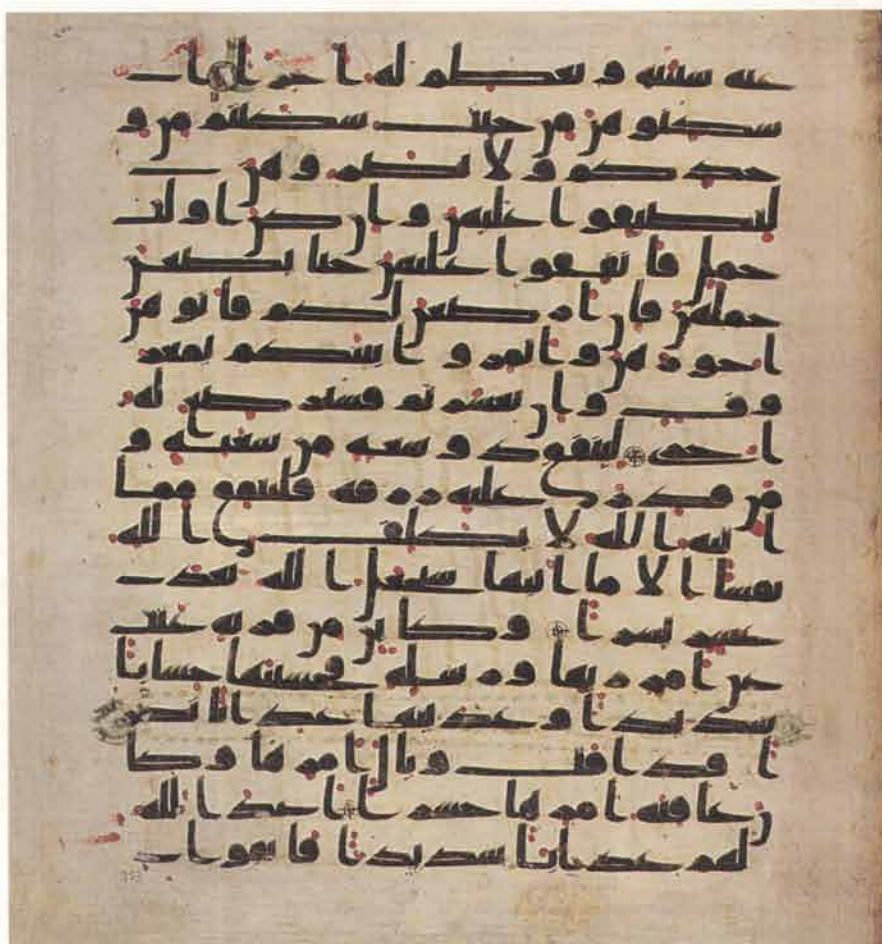 عنه سيته و يعظم له اجرا ا
سكنوهن من حيث سكنتم من و
جدكم و لا تضروهن
لتضيقوا عليهن و ان كن اولت
حمل فانفقوا عليهن حتى يضعن
حملهن فان ارضعن لكم فاتوهن
اجورهن و اتمروا بينكم بمعر
وف و ان تعسرتم فسترضع له
اخرى لينفق ذو سعة من سعته و
من قدر عليه رزقه فلينفق مما
اتيه الله لا يكلف الله
نفسا الا ما اتيها سيجعل الله بعد
عسر يسرا و كاين من قرية عتت
عن امر ربها و رسله فحسبنها حسابا
شديدا و عذبنها عذابا نكر
ا فذاقت و بال امرها و كا
ن عاقبة امرها خسرا اعد الله
لهم عذابا شديدا فاتقوا ا